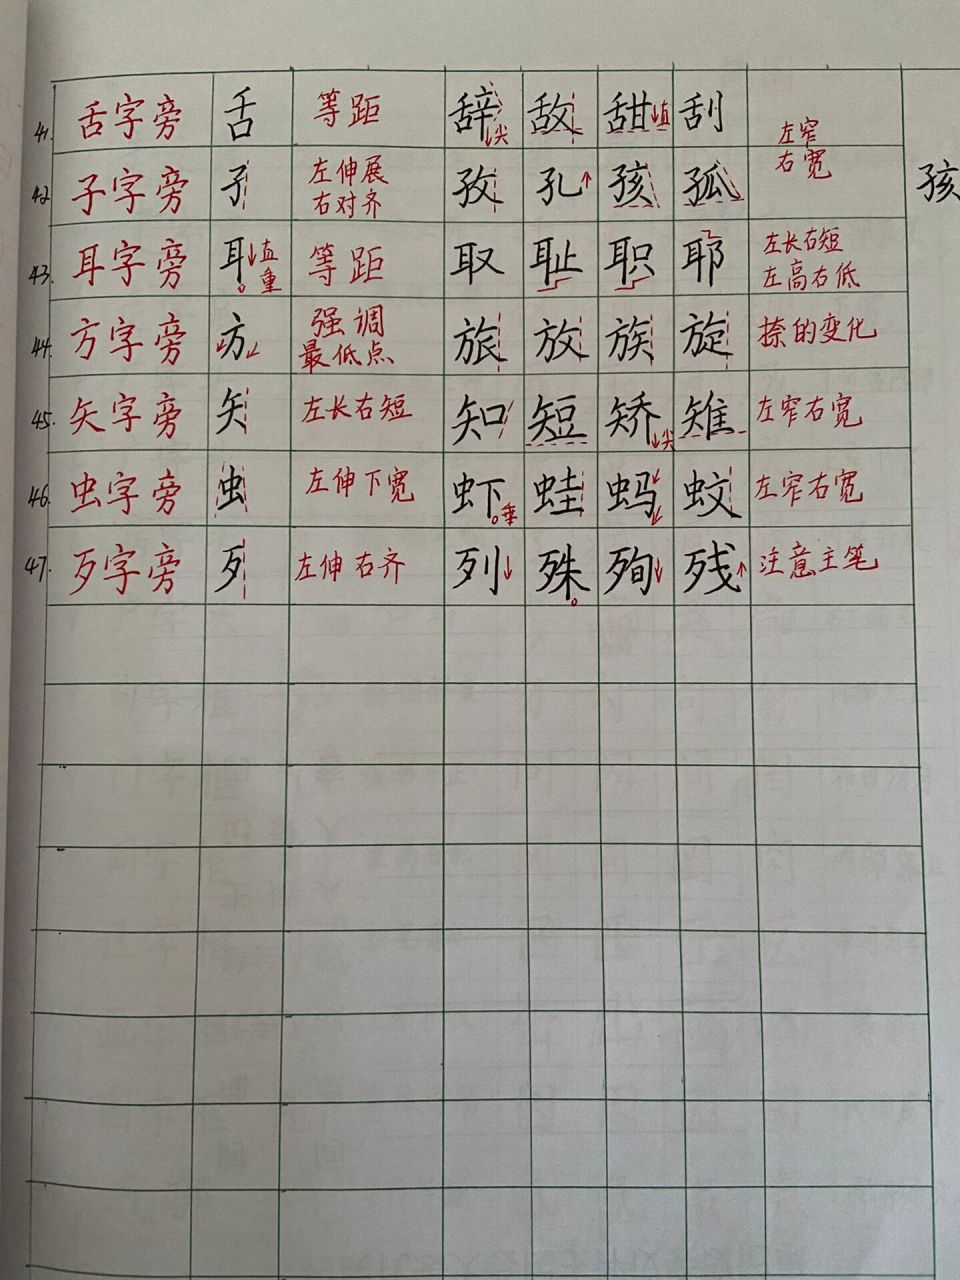 41. 舌字旁 舌 等距 辞 ↓尖 敌 甜 ↓直 刮 左窄
右宽
42 子字旁 孑 左伸展 孜 孔 孩 孤 孩
右对齐
43. 耳字旁 耳 ↓直 等距 取 耻 职 耶 左长右短
重 左高右低
44. 方字旁 方 强调 旅 放 族 旋 捺的变化
最低点
45. 矢字旁 矢 左长右短 知 短 矫 ↓尖 雉 左窄右宽
46. 虫字旁 虫 左伸下宽 虾 垂 蛙 蚂 蚊 左窄右宽
47. 歹字旁 歹 左伸右齐 列 殊 殉 残 注意主笔